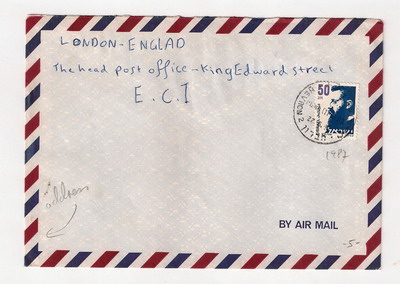 LONDON-ENGLAD
The head post office-King Edward street
E.C.I
50
ישראל
1987
address
BY AIR MAIL
-5-